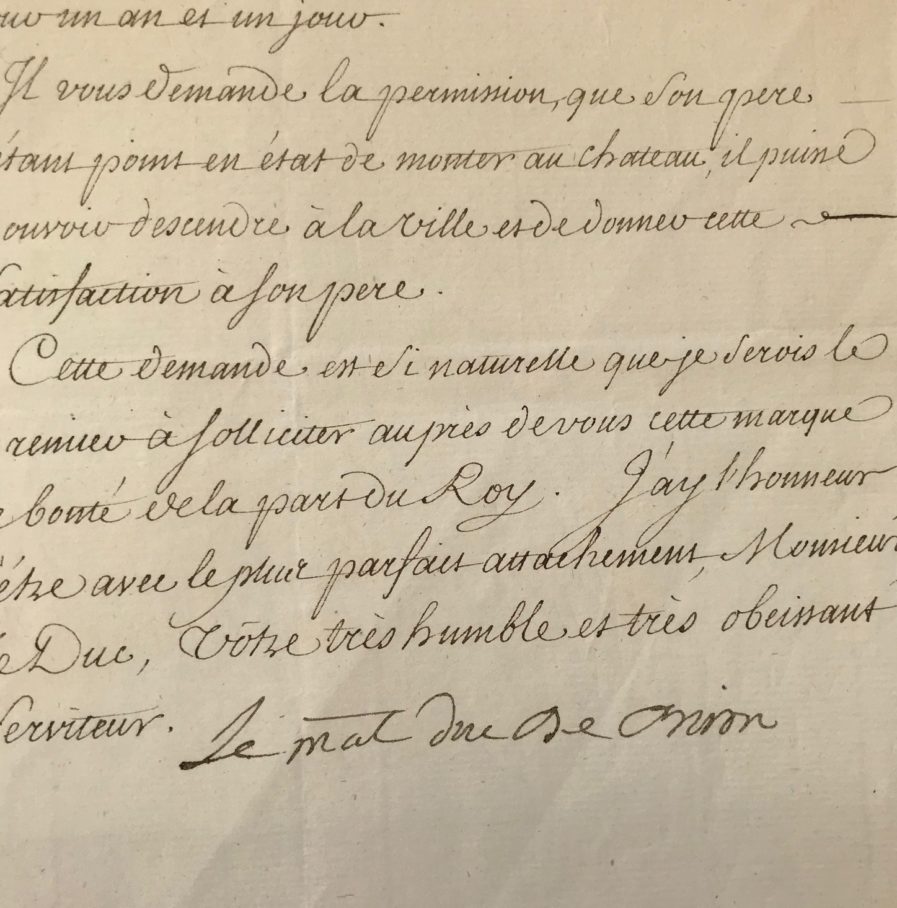 un an et un jour.
Il vous demande la permission, que son pere
étant point en état de monter au chateau, il puisse
ouvoir descendre à la ville et de donner cette
satisfaction à son pere.
Cette demande est si naturelle que je serois le
remier à solliciter auprès de vous cette marque
e bonté de la part du Roy. J'ay l'honneur
d'étre avec le plus parfait attachement, Monsieur
le Duc, Vôtre très humble et très obeissant
serviteur. Le mal duc de Biron